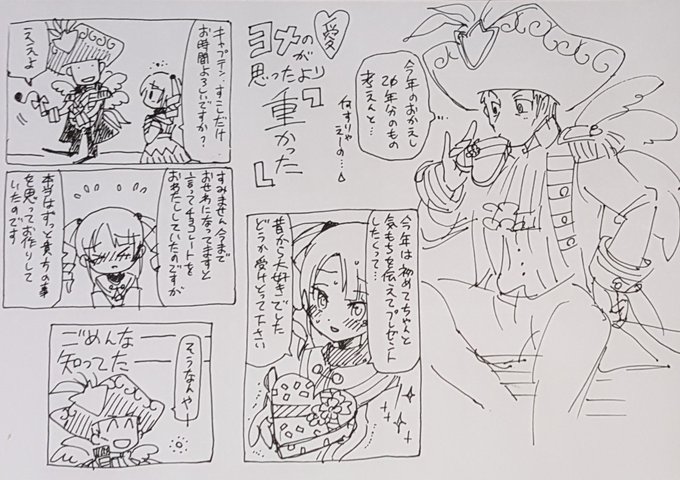 キャプテン…すこしだけ
お時間よろしいですか？
ええよ
すみません今まで
おせわになってますと
言ってチョコレートを
おわたししていたのですが
本当はずっと貴方の事
を思ってお作りして
いたのです
そうなんやー
ごめんな
知ってた
愛
ヨメの
思ったよりが
重かった
ねすりゃ
えーの…
今年は初めてちゃんと
気もちを伝えてプレゼント
したくって…
昔から大好きでした
どうか受けとって下さい
今年のおかえし
26年分のもの
考えんと…